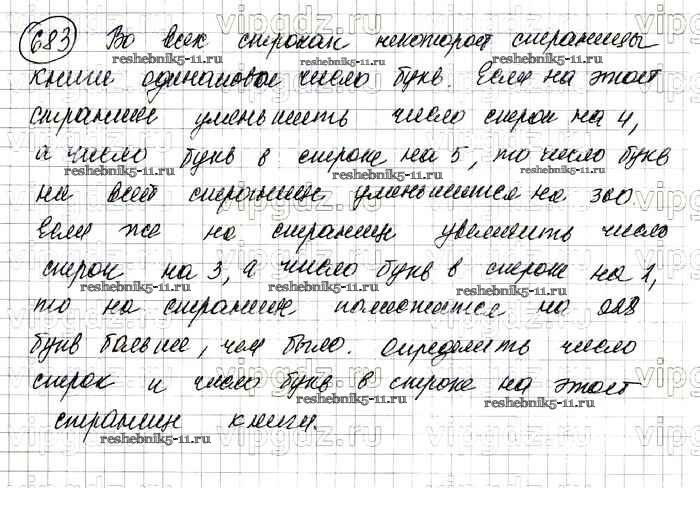 683 Во всех строках некоторой страницы
книги одинаковое число букв. Если на этой
странице уменьшить число строк на 4,
а число букв в строке на 5, то число букв
на всей странице уменьшится на 300.
Если же на странице увеличить число
строк на 3, а число букв в строке на 2,
то на странице поместится на 228
букв больше, чем было. Определить число
строк и число букв в строке на этой
странице книги.